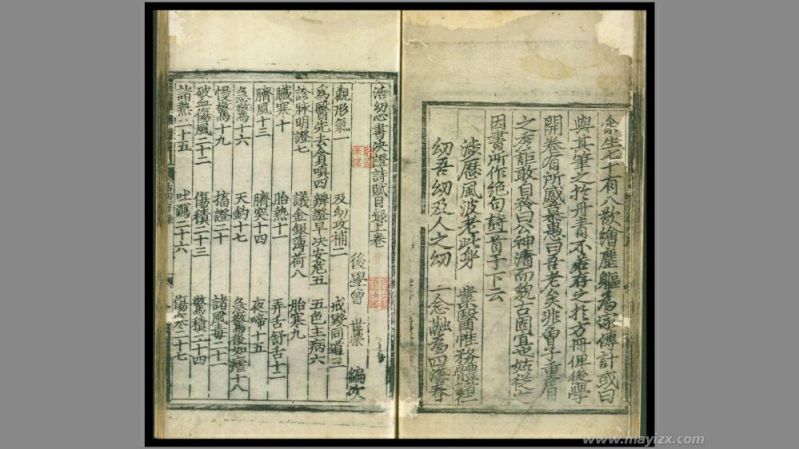 余生七十有八敬繪塵軀為家傳計或曰
與其筆之於丹青不若存之於方冊俾後學
開卷有所感慕焉曰吾老矣非曾子重眉
之秀詎敢自曰公神清而貌古固宜姑從之
因書所作絕句于下云
涉歷風波老此身 業醫惟務體仁
幼吾幼及人之幼 一念融為四海春
活幼心書決證詩賦目錄上卷
後學曾 世榮 編次
觀形氣一 及幼攻補二 戒毀同道三
為醫先去貪嗔四 辨證早決安危五 五色主病六
診脉明證七 議金銀薄荷八 胎寒九
臟寒十 胎熱十一 弄舌舒舌十二
臍風十三 臍突十四 夜啼十五
急驚十六 天釣十七 急驚後如瘧十八
慢驚十九 搐證二十 諸風毒二十一
破血傷風二十二 傷積二十三 驚積二十四
諸熱二十五 吐瀉二十六 傷寒二十七
www.mayizx.com